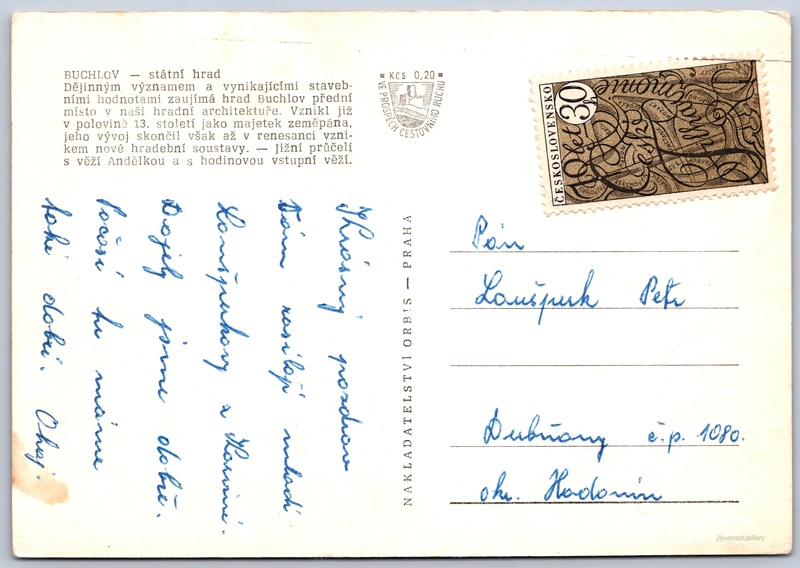 BUCHLOV — státní hrad
Dějinným významem a vynikajícími staveb-
ními hodnotami zaujímá hrad Buchlov přední
místo v naší hradní architektuře. Vznikl již
v polovině 13. století jako majetek zeměpána,
jeho vývoj skončil však až v renesanci vzni-
kem nové hradební soustavy. — Jižní průčelí
s věží Andělkou a s hodinovou vstupní věží.
Kčs 0,20
VE PROSPĚCH CESTOVNÍHO RUCHU
ČESKOSLOVENSKO
30h
Krásný pozdrav
Vám zasílají mladí
Loušperkovy z
Dojely jsme dobře.
Počasí tu máme
také dobré. Ahoj.
NAKLADATELSTVÍ ORBIS — PRAHA
Pán
Loušperk Petr
Dubňany č.p. 1080.
okr. Hodonín